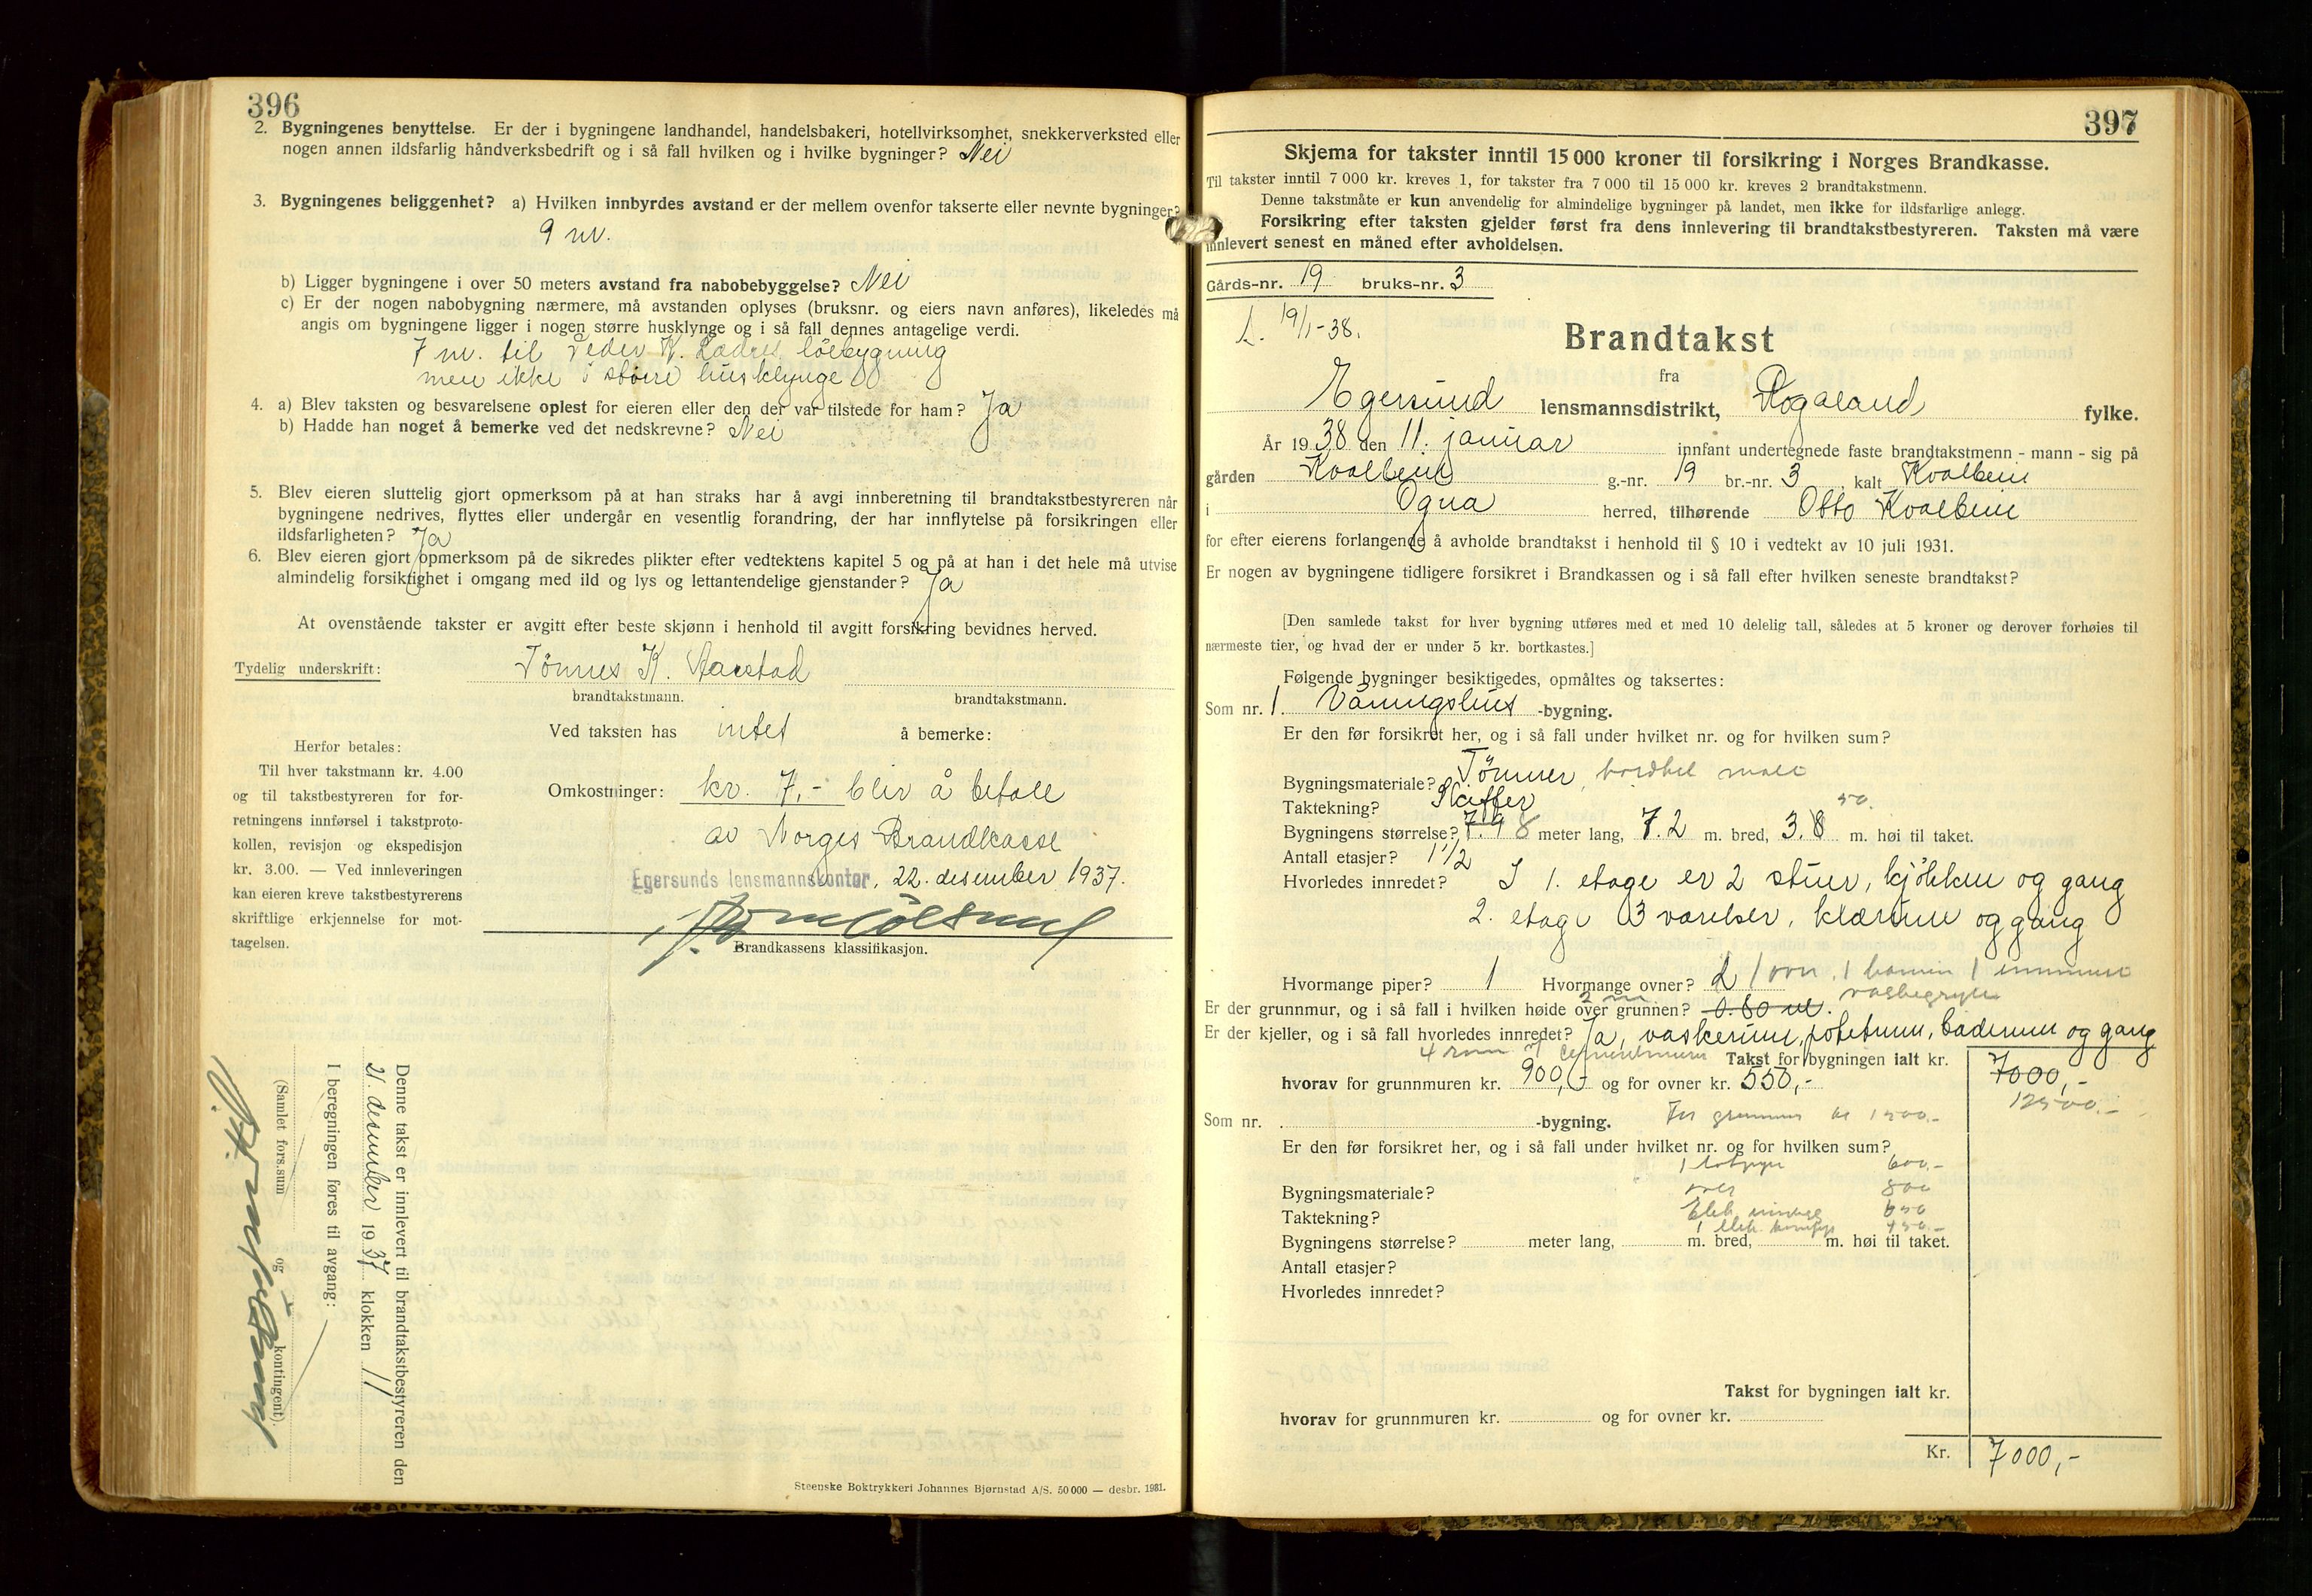 396
2. Bygningenes benyttelse. Er der i bygningene landhandel, handelsbakeri, hotellvirksomhet, snekkerverksted eller
nogen annen ildsfarlig håndverksbedrift og i så fall hvilken og i hvilke bygninger? Nei
3. Bygningenes beliggenhet? a) Hvilken innbyrdes avstand er der mellem ovenfor takserte eller nevnte bygninger?
9 m.
b) Ligger bygningene i over 50 meters avstand fra nabobebyggelse? Nei
c) Er der nogen nabobygning nærmere, må avstanden oplyses (bruksnr. og eiers navn anføres), likeledes må
angis om bygningene ligger i nogen større husklynge og i så fall dennes antagelige verdi.
7 m. til Peder K. løebygning
men ikke i större husklynge
4. a) Blev taksten og besvarelsene oplest for eieren eller den der var tilstede for ham? Ja
b) Hadde han noget å bemerke ved det nedskrevne? Nei
5. Blev eieren sluttelig gjort opmerksom på at han straks har å avgi innberetning til brandtakstbestyreren når
bygningene nedrives, flyttes eller undergår en vesentlig forandring, der har innflytelse på forsikringen eller
ildsfarligheten? Ja
6. Blev eieren gjort opmerksom på de sikredes plikter efter vedtektens kapitel 5 og på at han i det hele må utvise
almindelig forsiktighet i omgang med ild og lys og lettantendelige gjenstander? Ja
At ovenstående takster er avgitt efter beste skjønn i henhold til avgitt forsikring bevidnes herved.
Tydelig underskrift: Tönnes K. Aarstad
brandtakstmann. brandtakstmann.
Ved taksten has intet å bemerke:
Herfor betales:
Til hver takstmann kr. 4.00
og til takstbestyreren for for-
retningens innførsel i takstproto-
kollen, revisjon og ekspedisjon
kr. 3.00. — Ved innleveringen
kan eieren kreve takstbestyrerens
skriftlige erkjennelse for mot-
tagelsen.
Omkostninger: kr. 7,- blir å betale
av Norges Brandkasse
Egersunds lensmannskontor, 22. desember 1937.
Brandkassens klassifikasjon.
Denne takst er innlevert til brandtakstbestyreren den
21. desember 1937 klokken 11
I beregningen føres til avgang:
(Samlet fors.sum og kontingent).
Steenske Boktrykkeri Johannes Bjørnstad A/S. 50 000 — desbr. 1931.
397
Skjema for takster inntil 15 000 kroner til forsikring i Norges Brandkasse.
Til takster inntil 7 000 kr. kreves 1, for takster fra 7 000 til 15 000 kr. kreves 2 brandtakstmenn.
Denne takstmåte er kun anvendelig for almindelige bygninger på landet, men ikke for ildsfarlige anlegg.
Forsikring efter taksten gjelder først fra dens innlevering til brandtakstbestyreren. Taksten må være
innlevert senest en måned efter avholdelsen.
Gårds-nr. 19 bruks-nr. 3
19/1-38.
Brandtakst
fra
Egersund lensmannsdistrikt, Rogaland fylke.
År 1938 den 11. januar innfant undertegnede faste brandtakstmenn - mann - sig på
gården Kvalbein g.-nr. 19 br.-nr. 3, kalt Kvalbein
i Ogna herred, tilhørende Otto Kvalbein
for efter eierens forlangende å avholde brandtakst i henhold til § 10 i vedtekt av 10 juli 1931.
Er nogen av bygningene tidligere forsikret i Brandkassen og i så fall efter hvilken seneste brandtakst?
[Den samlede takst for hver bygning utføres med et med 10 delelig tall, således at 5 kroner og derover forhøies til
nærmeste tier, og hvad der er under 5 kr. bortkastes.]
Følgende bygninger besiktigedes, opmåltes og taksertes:
Som nr. 1. Våningshus -bygning.
Er den før forsikret her, og i så fall under hvilket nr. og for hvilken sum?
Bygningsmateriale? Tömmer,
Taktekning? Skiffer
Bygningens størrelse? 7.9 8 meter lang, 7.2 m. bred, 3.8 m. høi til taket.
Antall etasjer? 1 1/2
Hvorledes innredet? I 1. etage er 2 stuer, kjökken og gang
2. etage 3 værelser, klærum og gang
Hvormange piper? 1 Hvormange ovner? 2 1 ovn, 1 kamin 1
Er der grunnmur, og i så fall i hvilken høide over grunnen? 2 m 0.80 m.
Er der kjeller, og i så fall hvorledes innredet? Ja, vaskerum, potetrum, baderum og gang
4 rom Takst for bygningen ialt kr. 7000,-
hvorav for grunnmuren kr. 900,- og for ovner kr. 550,- 12500.-
Som nr. -bygning. For grunnmur kr 1500.-
Er den før forsikret her, og i så fall under hvilket nr. og for hvilken sum?
600.-
Bygningsmateriale? 800
Taktekning? Elek.
1 Elek. komfyr 450.-
Bygningens størrelse? meter lang, m. bred, m. høi til taket.
Antall etasjer?
Hvorledes innredet?
Takst for bygningen ialt kr.
hvorav for grunnmuren kr. og for ovner kr.
Kr. 7000,-